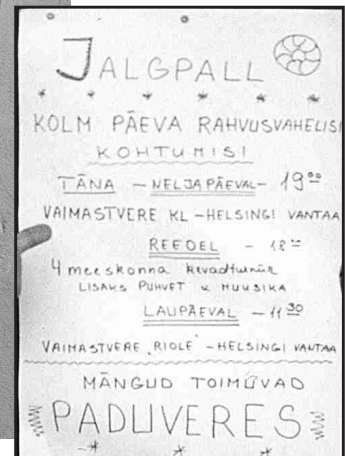 JALGPALL
KOLM PÄEVA RAHVUSVAHELISI
KOHTUMISI
TÄNA - NELJAPÄEVAL - 19 00
VAIMASTVERE KL - HELSINGI VANTAA
REEDEL - 18
4 meeskonna kevadturniir
LISAKS PUHVET MUUSIKA
LAUPÄEVAL - 11 30
VAIMASTVERE "RIOLE" - HELSINGI VANTAA
MÄNGUD TOIMUVAD
PADUVERES